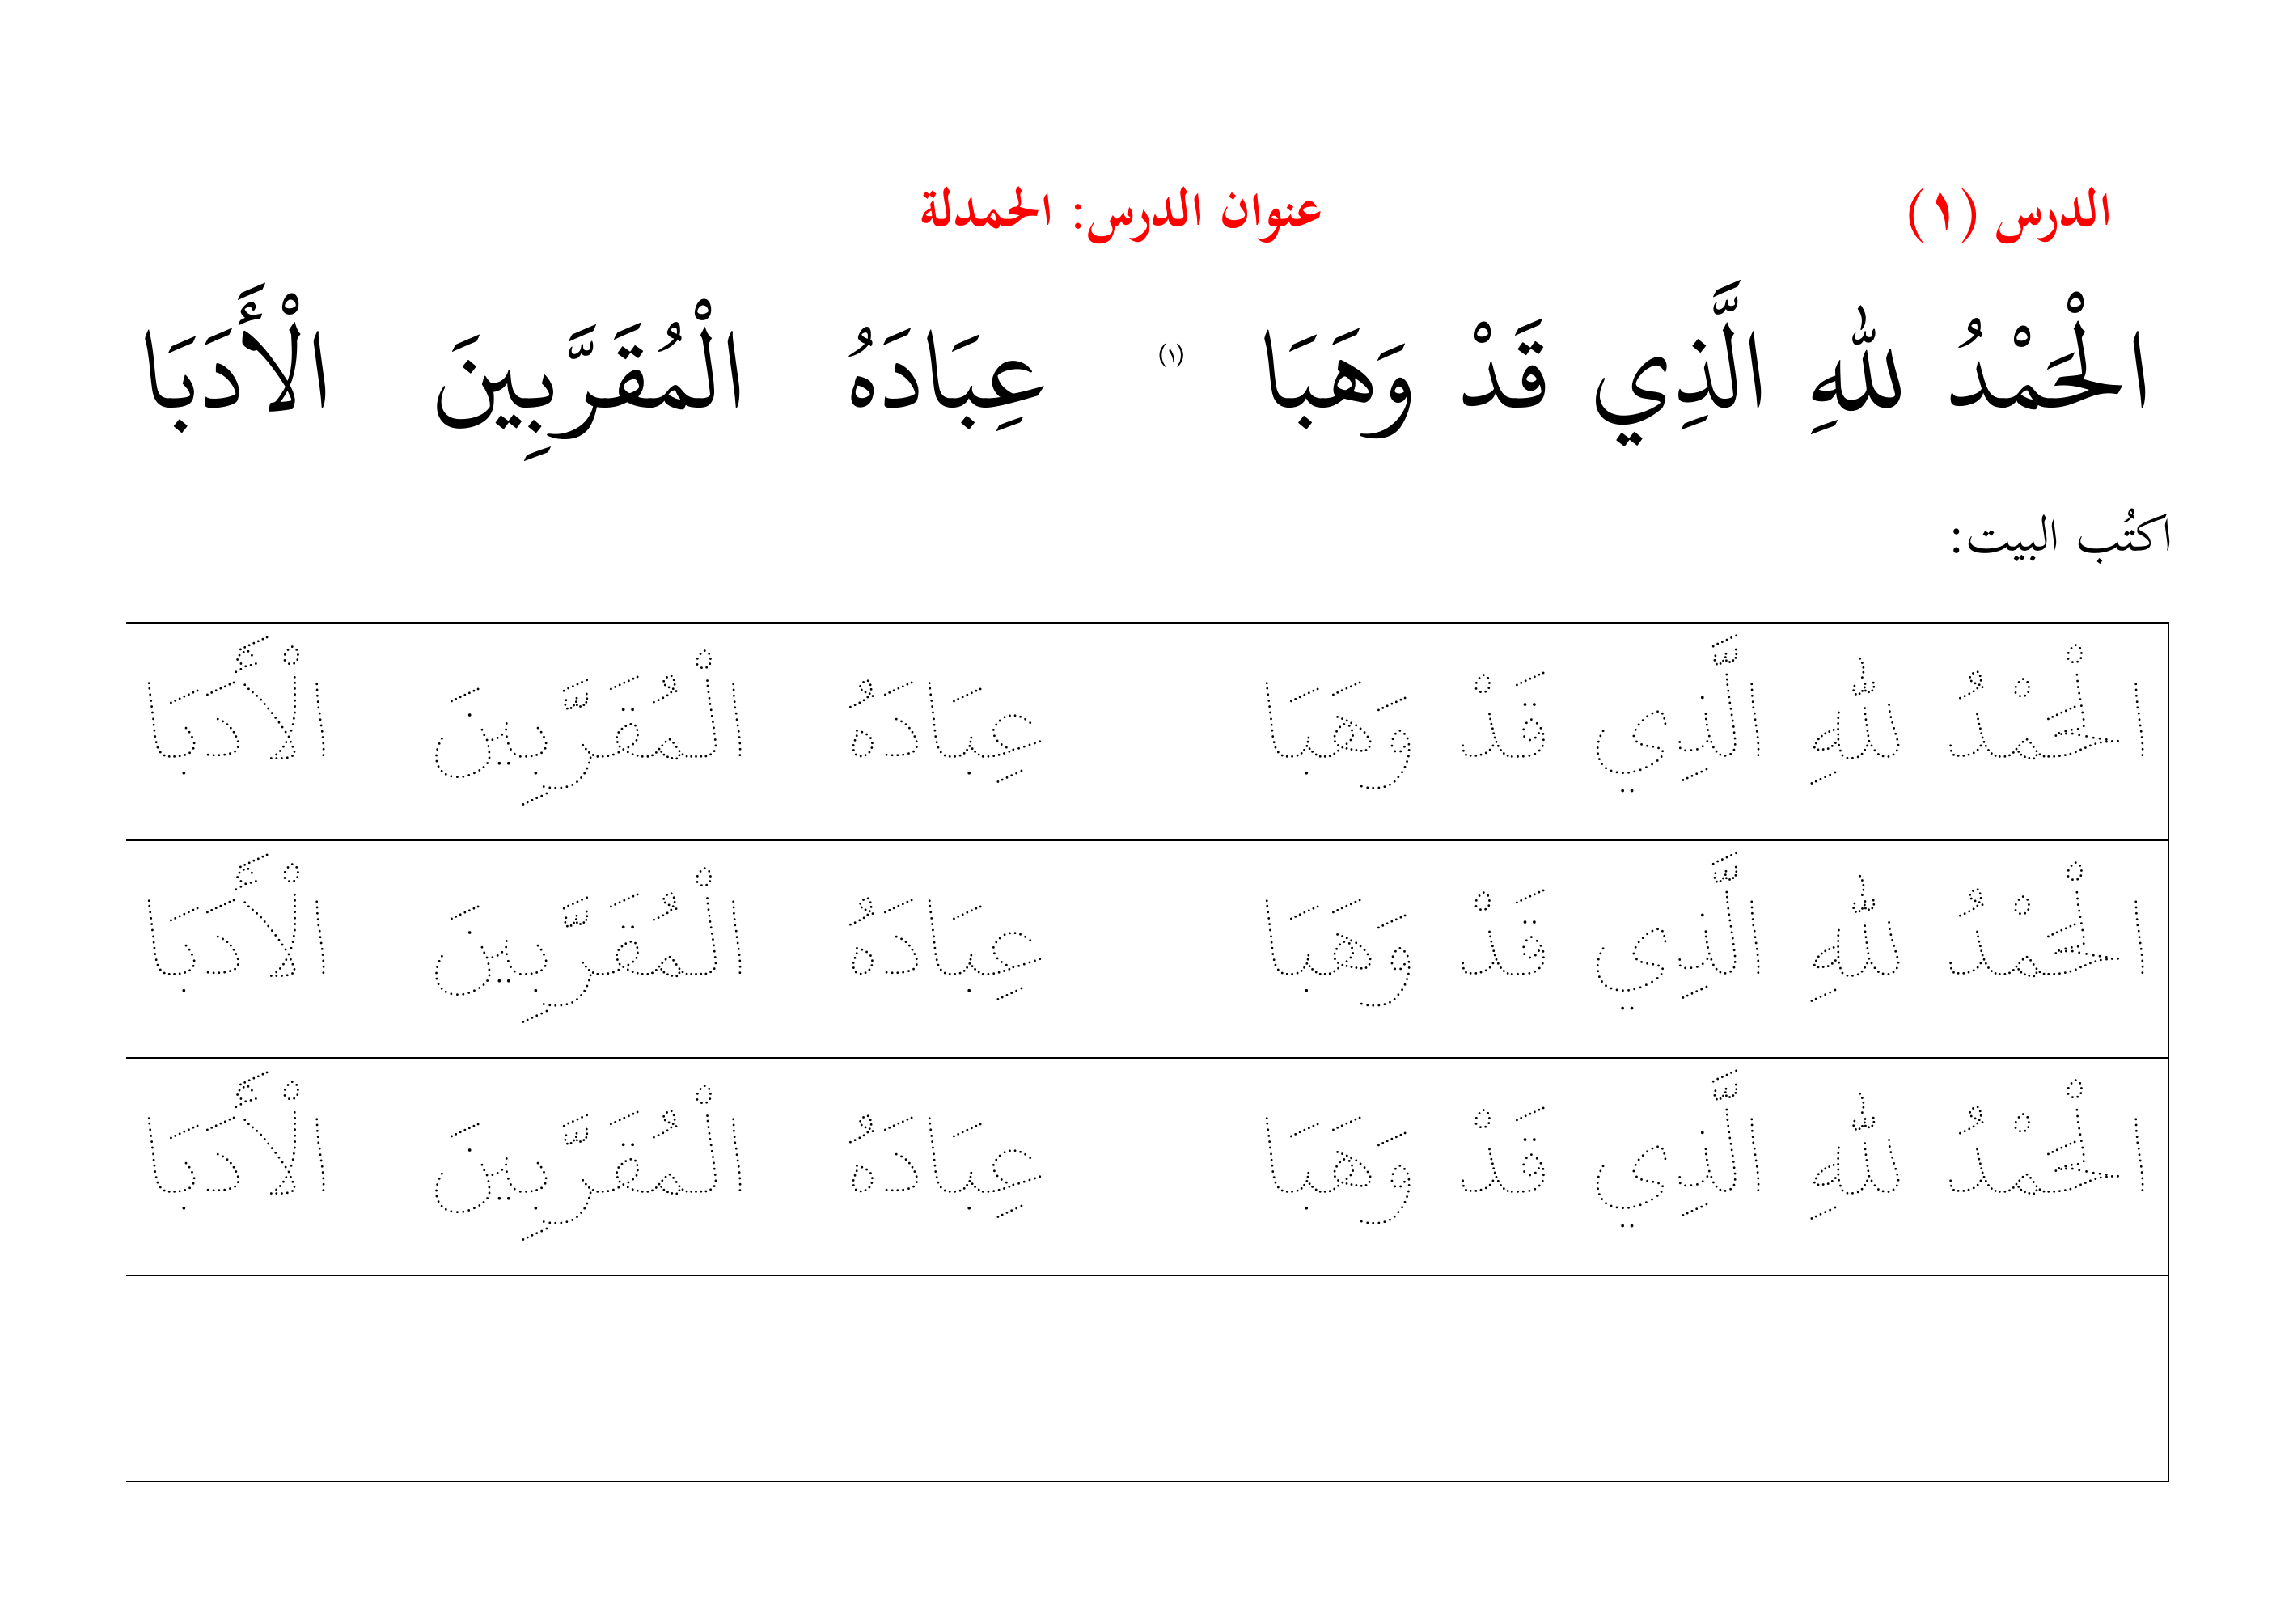 الدرس (١) عنوان الدرس: الحمدلة
الْحَمْدُ لِلّٰهِ الَّذِي قَدْ وَهَبَا (١) عِبَادَهُ الْمُقَرَّبِينَ الْأَدَبَا
اكتُب البيت:
الْحَمْدُ لِلّٰهِ الَّذِي قَدْ وَهَبَا عِبَادَهُ الْمُقَرَّبِينَ الْأَدَبَا
الْحَمْدُ لِلّٰهِ الَّذِي قَدْ وَهَبَا عِبَادَهُ الْمُقَرَّبِينَ الْأَدَبَا
الْحَمْدُ لِلّٰهِ الَّذِي قَدْ وَهَبَا عِبَادَهُ الْمُقَرَّبِينَ الْأَدَبَا